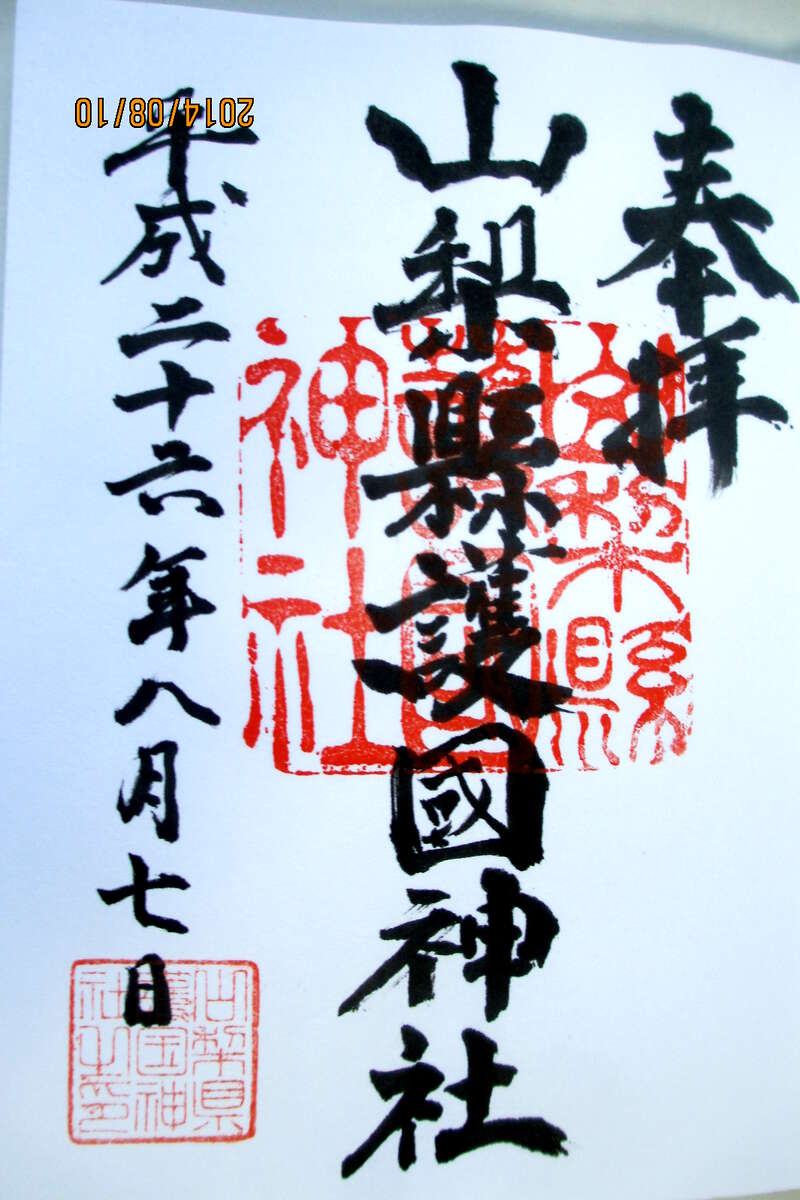 奉拝
山梨縣護國神社
平成二十六年八月七日
山梨縣
護國
神社
山梨県
護国神
社之印
2014/08/10